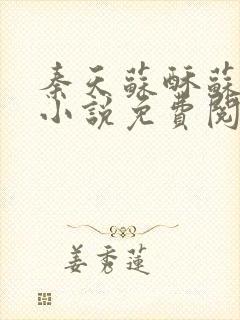 秦天蘇酥蘇
小說免費閱
姜秀蓮